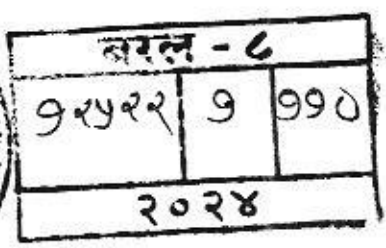 बरल - ८
१२५२२ १ ११०
२०२४